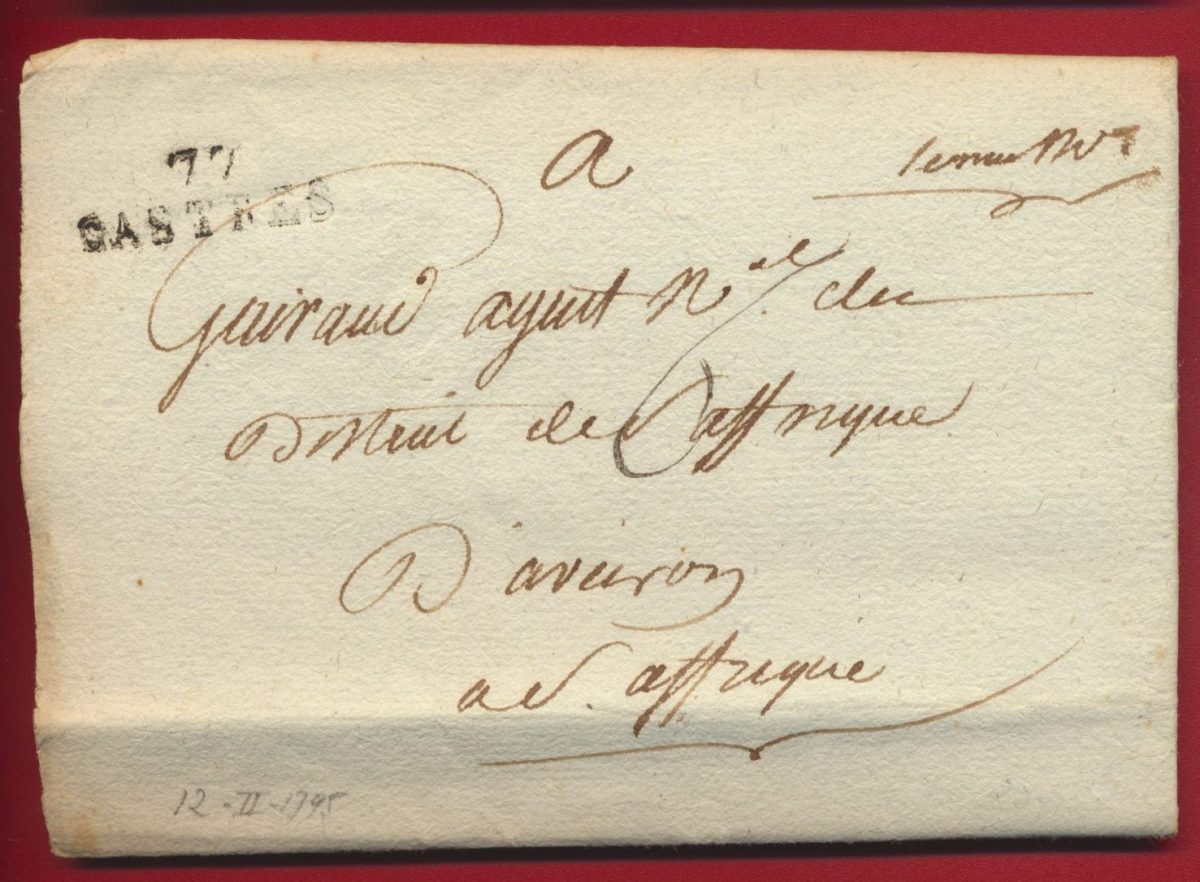 77
CASTRES
a
Gairaud agent N.al du
District de S affrique
D'aveiron
a S. affrique
12-II-1795